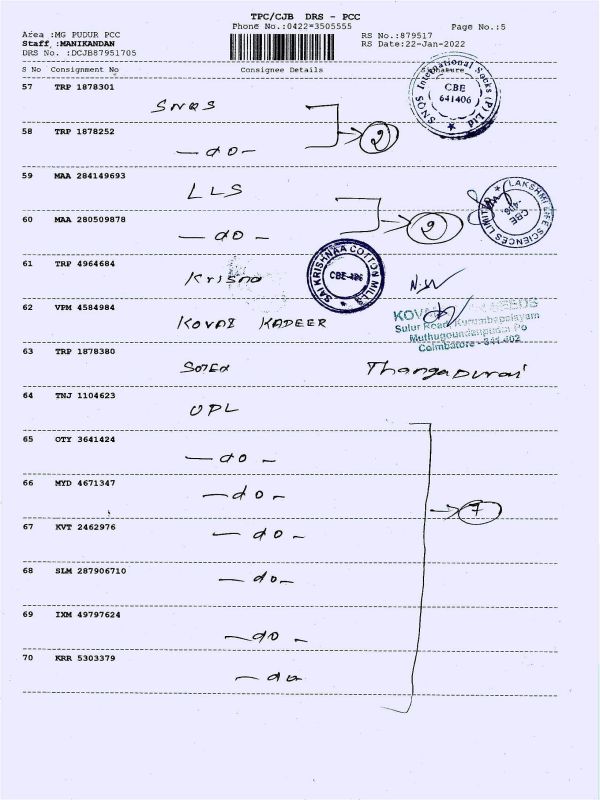 TPC/CJB DRS - PCC
Phone No.:0422*3505555
Page No.:5
Area :MG PUDUR PCC
RS No.:879517
Staff :MANIKANDAN
RS Date:22-Jan-2022
DRS No. :DCJB87951705
S No Consignment No Consignee Details Signature
57 TRP 1878301
SNQS
SNQS International Socks (P) Ltd
CBE
641406
58 TRP 1878252
—do— 2
59 MAA 284149693
LLS
LAKSHMI LIFE SCIENCES LIMITED
CBE
60 MAA 280509878
—do— 2
61 TRP 4964684
Krisna
SAI KRISHNAA COTTON MILLS
62 VPM 4584984
KOVAI KADEER
Sulur Road, Kurumbapalayam
Muthugoundanpudur Po
Coimbatore - 641 402
63 TRP 1878380
Thangadurai
64 TNJ 1104623
UPL
65 OTY 3641424
—do—
66 MYD 4671347
—do— 7
67 KVT 2462976
—do—
68 SLM 287906710
—do—
69 IXM 49797624
—do—
70 KRR 5303379
—do